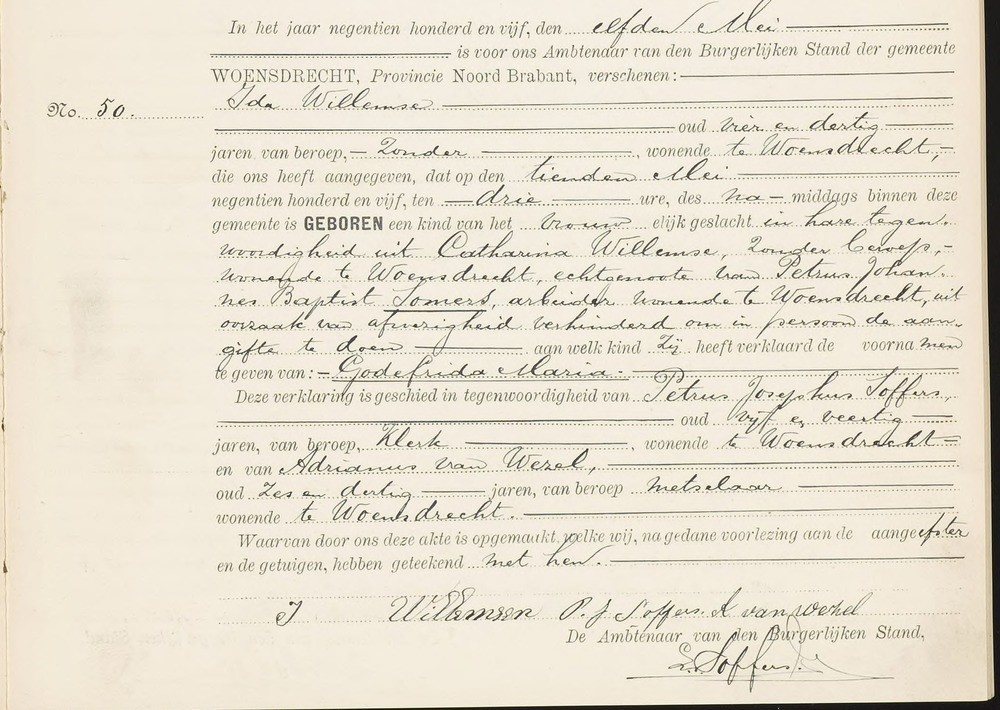 In het jaar negentien honderd en vijf, den elfden Mei
is voor ons Ambtenaar van den Burgerlijken Stand der gemeente
WOENSDRECHT, Provincie Noord Brabant, verschenen:
No. 50. Ida Willemse
oud vier en dertig
jaren van beroep, Zonder, wonende te Woensdrecht,
die ons heeft aangegeven, dat op den tienden Mei
negentien honderd en vijf, ten drie ure, des na middags binnen deze
gemeente is GEBOREN een kind van het vrouw elijk geslacht in hare tegen-
woordigheid uit Catharina Willemse, zonder beroep,
wonende te Woensdrecht, echtgenoote van Petrus Johan-
nes Baptist Somers, arbeider wonende te Woensdrecht, uit
oorzaak van afwezigheid verhinderd om in persoon de aan-
gifte te doen aan welk kind Zij heeft verklaard de voorna men
te geven van: Godefrida Maria.
Deze verklaring is geschied in tegenwoordigheid van Petrus Josephus Soffers,
oud vijf en veertig
jaren, van beroep, Klerk, wonende te Woensdrecht
en van Adrianus van Wezel,
oud Zes en dertig jaren, van beroep metselaar
wonende te Woensdrecht.
Waarvan door ons deze akte is opgemaakt, welke wij, na gedane voorlezing aan de aangeefster
en de getuigen, hebben geteekend met hen.
I Willemsen P. J. Soffers. A van wezel
De Ambtenaar van den Burgerlijken Stand,
Soffers.